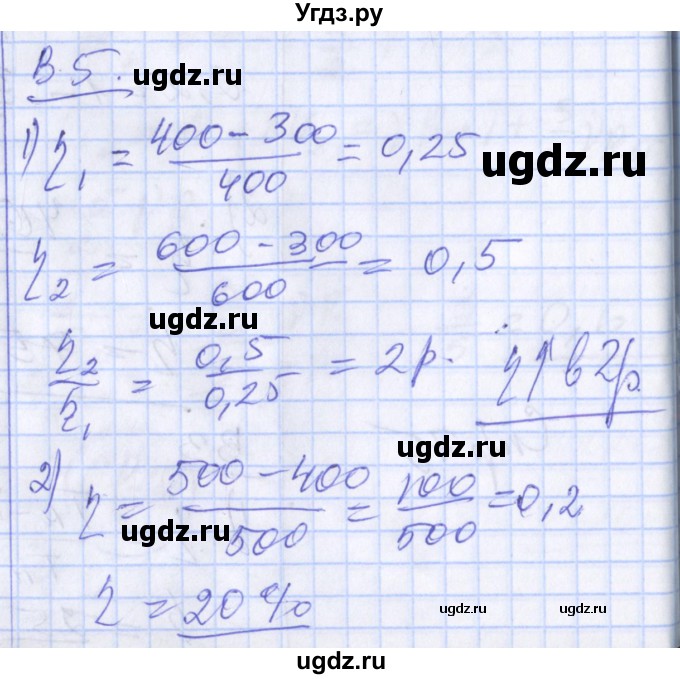 Угдз.ру
В.5.
ugdz.ru
1) η₁ = (400 - 300)/400 = 0,25
ugdz.ru
ugdz.ru
η₂ = (600 - 300)/600 = 0,5
ugdz.ru
η₂/η₁ = 0,5/0,25 = 2 р. η ↑ в 2р.
ugdz.ru
ugdz.ru
2) η = (500 - 400)/500 = 100/500 = 0,2
ugdz.ru
η = 20%
ugdz.ru
ugdz.ru
ugdz.ru